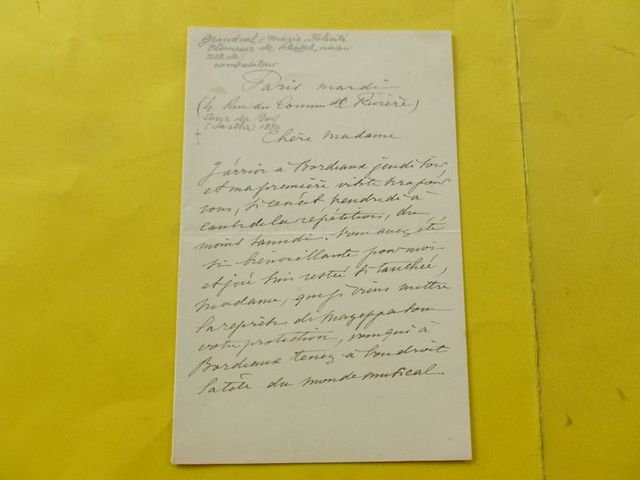 Grandval, Marie Félicité
Clémence de Reiset, vicomtesse de
compositeur
Paris mardi
(4 Rue du Commdt Rivière)
Cour du Bois
(Sarthe) 1830
Chère Madame
J'arrive à Bordeaux jeudi soir
et ma première visite sera pour
vous, si ce n'est vendredi à
cause de la répétition, du
moins samedi. Vous avez été
si bienveillante pour moi
et j'en suis restée si touchée,
Madame, que je viens mettre
la reprise de Mazeppa sous
votre protection, vous qui à
Bordeaux tenez à bon droit
la tête du monde musical.